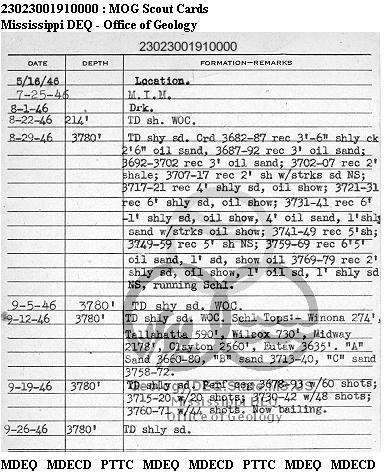 23023001910000 : MOG Scout Cards
Mississippi DEQ - Office of Geology
23023001910000
DATE DEPTH FORMATION—REMARKS
5/16/46 Location.
7-25-46 M.I.M.
8-1-46 Drk.
8-22-46 214' TD sh. WOC.
8-29-46 3780' TD shy sd. Crd 3682-87 rec 3'-6" shly ck
2'6" oil sand, 3687-92 rec 3' oil sand;
3692-3702 rec 3' oil sand; 3702-07 rec 2'
shale; 3707-17 rec 2' sh w/strks sd NS;
3717-21 rec 4' shly sd, oil show; 3721-31
rec 6' shly sd, oil show; 3731-41 rec 6'
-1' shly sd, oil show, 4' oil sand, 1'shly
sand w/strks oil show; 3741-49 rec 5'sh;
3749-59 rec 5' sh NS; 3759-69 rec 6'5'
oil sand, 1' sd, show oil 3769-79 rec 2'
shly sd, oil show, 1' oil sd, 1' shly sd
NS, running Schl.
9-5-46 3780' TD shy sd. WOC.
9-12-46 3780' TD shly sd. WOC. Schl Tops:- Winona 274',
Tallahatta 590', Wilcox 730', Midway
2178', Clayton 2560', Eutaw 3635'. "A"
Sand 3660-80, "B" sand 3713-40, "C" sand
3758-72.
9-19-46 3780' TD shly sd. Perf csg 3678-93 w/60 shots;
3715-20 w/20 shots; 3730-42 w/48 shots;
3760-71 w/44 shots. Now bailing.
Mississippi DEQ
Office of Geology
9-26-46 3780' TD shly sd.
MDEQ MDECD PTTC MDEQ MDECD PTTC MDEQ MDECD